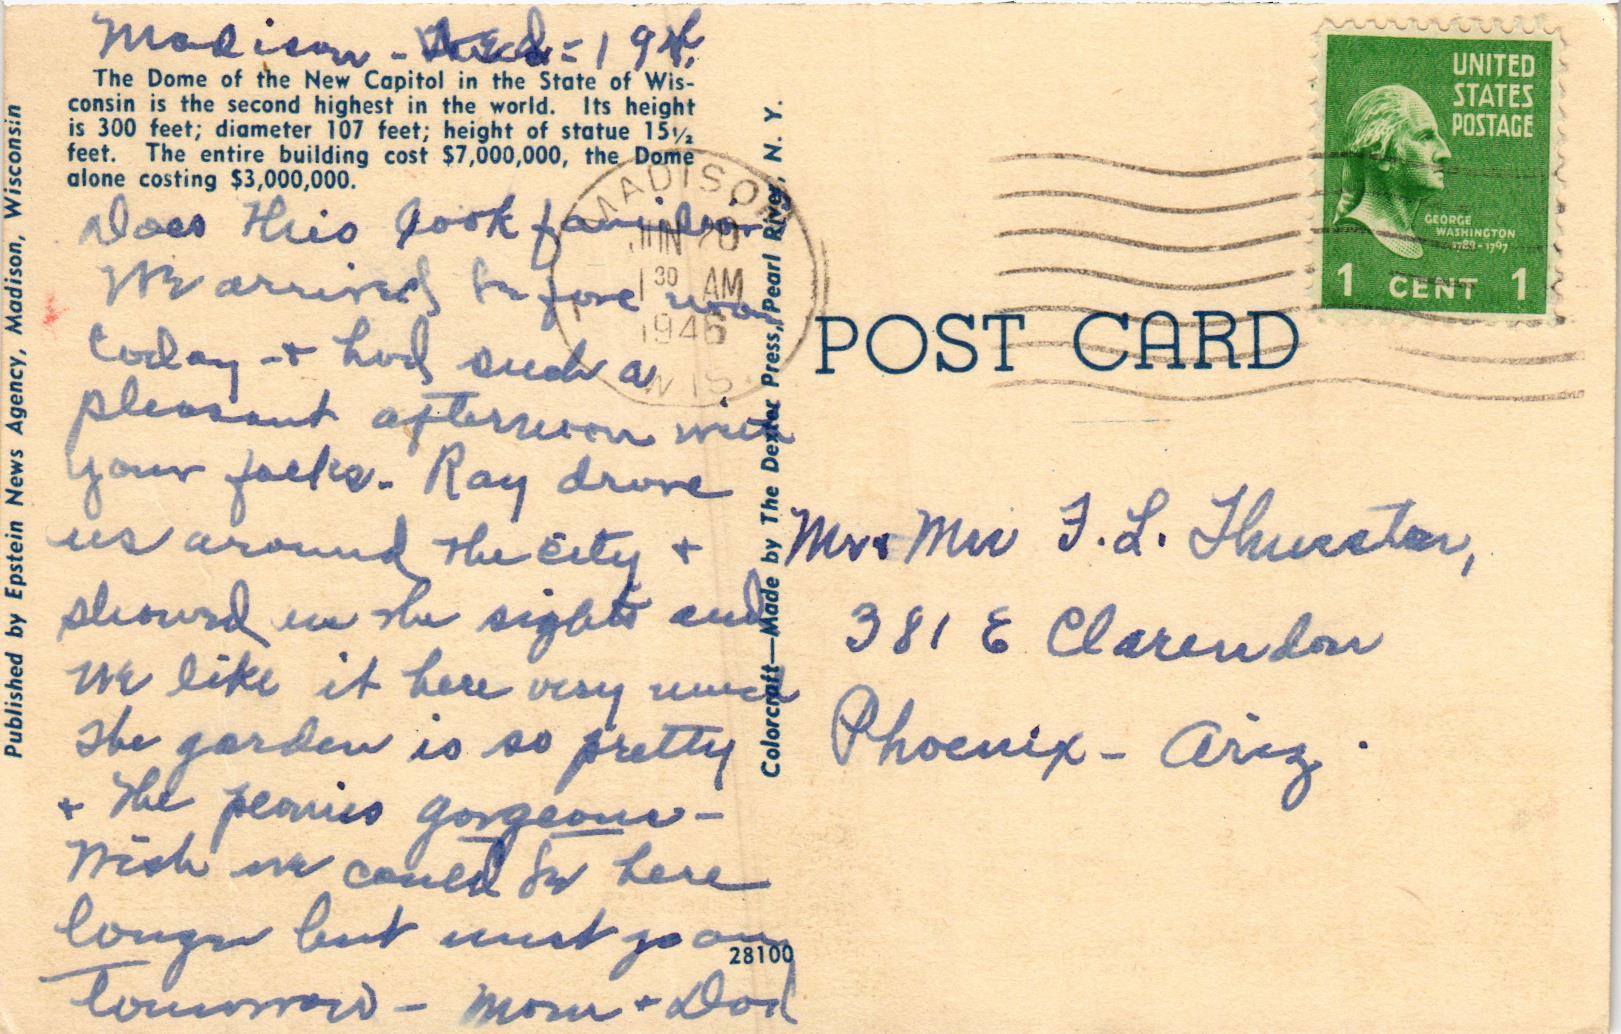 Madison - Wed - 19th
The Dome of the New Capitol in the State of Wis-
consin is the second highest in the world. Its height
is 300 feet; diameter 107 feet; height of statue 15½
feet. The entire building cost $7,000,000, the Dome
alone costing $3,000,000.
Does this look familiar
We arrived before noon
today - + had such a
pleasant afternoon with
your folks. Ray drove
us around the city +
showed us the sights and
we like it here very much
The garden is so pretty
+ the peonies gorgeous -
Wish we could be here
longer but must go on
tomorrow - Mom + Dad
Published by Epstein News Agency, Madison, Wisconsin
Colorcraft—Made by The Dexter Press, Pearl River, N. Y.
28100
MADISON
JUN 20
1 30 AM
1946
WIS.
POST CARD
UNITED
STATES
POSTAGE
GEORGE
WASHINGTON
1789-1797
1 CENT 1
Mr + Mrs F. L. Thurston,
381 E Clarendon
Phoenix - Ariz.